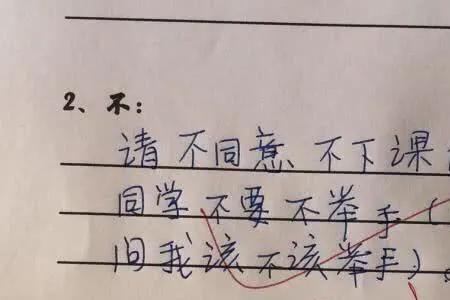 2、不：
请不同意不下课
同学不要不举手（
问我该不该举手）。